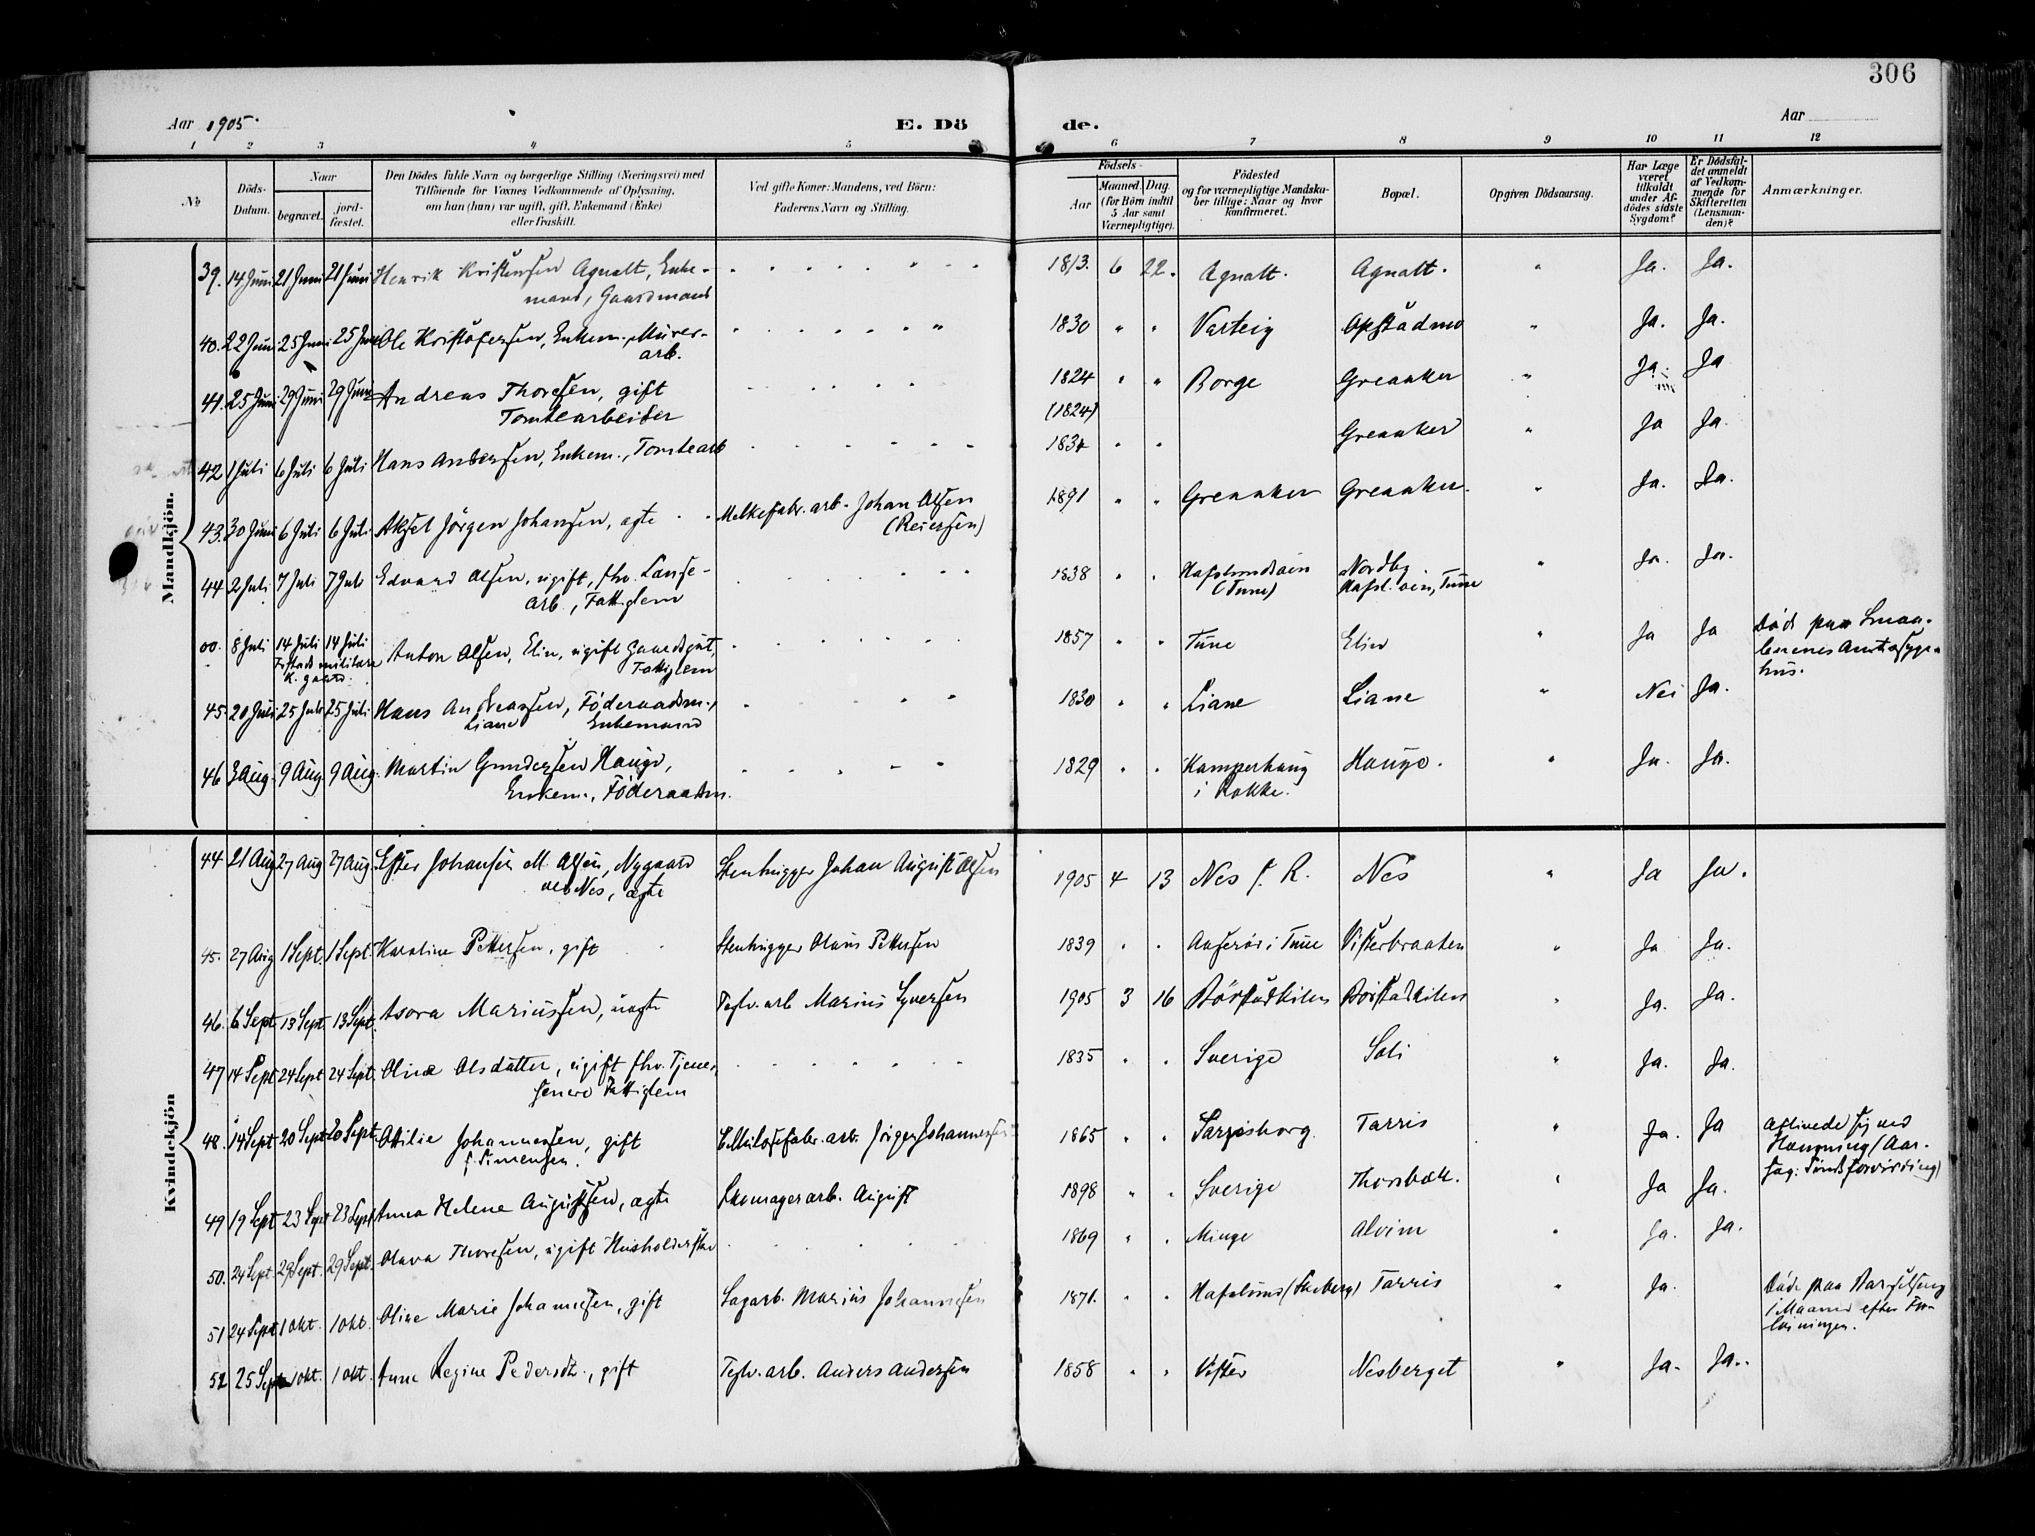 306
Aar 1905.
E. Dö de.
Aar
1 2 3 4 5 6 7 8 9 10 11 12
No
Döds-Datum.
Naar
begravet.
jord-fæstet.
Den Dödes fulde Navn og borgerlige Stilling (Næringsvei) med
Tilföiende for Voxnes Vedkommende af Oplysning,
om han (hun) var ugift, gift, Enkemand (Enke)
eller fraskilt.
Ved gifte Koner: Mandens, ved Börn:
Faderens Navn og Stilling.
Födsels-
Aar
Maaned. Dag.
(for Börn indtil
5 Aar samt
Værnepligtige).
Födested
og for værnepligtige Mandska-
ber tillige: Naar og hvor
konfirmeret.
Bopæl.
Opgiven Dödsaarsag.
Har Læge
været
tilkaldt
under Af-
dödes sidste
Sygdom?
Er Dödsfal-
det anmeldt
af Vedkom-
mende for
Skifteretten
(Lensman-
den)?
Anmærkninger.
Mandkjön.
39. 14 Juni 21 Juni 21 Juni Henrik Kristensen Agnalt, Enke- 1813. 6 22. Agnalt. Agnalt. " Ja. Ja.
mand, Gaardmand
40. 22 Juni 25 Juni 25 Juni Ole Kristofersen, Enkem., Murer- 1830 " " Varteig Opstadmo " Ja. Ja.
arb.
41. 25 Juni 29 Juni 29 Juni Andreas Thoresen, gift 1824 " " Borge Greaaker " Ja. Ja
Tomtearbeider (1824)
42. 1 Juli 6 Juli 6 Juli Hans Andersen, Enkem., Tomtearb 1834 " " Greaaker " Ja Ja.
43. 30 Juni 6 Juli 6 Juli Aksel Jörgen Johansen, ægte Melkefabr. arb. Johan Olsen 1891 " " Greaaker Greaaker. " Ja. Ja.
(Reiersen)
44 2 Juli 7 Juli 7 Juli Edvard Olsen, ugift, fhv. Landse- 1838 " " Hafslundsøien Nordby " Ja. Ja.
Arb., Fattiglem (Tune) Hafsl. øien, Tune
00. 8 Juli 14 Juli 14 Juli Anton Olsen, Elin, ugift Gaardsgut, 1857 " " Tune Elin " Ja Ja Död paa Smaa-
F.stads militære Fattiglem lenenes Amtssyge-
K. gaard. hus.
45. 20 Juli 25 Juli 25 Juli Hans Andreassen, Föderaadsm., 1830 " " Liane Liane " Nei Ja.
Liane Enkemand
46 3 Aug. 9 Aug. 9 Aug. Martin Gundersen Haugo, 1829 " " Kamperhaug Haugo. " Ja. Ja.
Enkem., Föderaadsm. i Rokke.
Kvindekjön
44 21 Aug 27 Aug 27 Aug. Ester Johansen M. Olsen, Nygaard Stenhugger Johan August Olsen 1905 4 13 Nes f. R. Nes " Ja Ja.
ved Nes, ægte
45. 27 Aug 1 Sept. 1 Sept. Karoline Pettersen, gift Stenhugger Olaus Pettersen 1839 " " Aaserød i Tune Visterbraaten " Ja Ja.
46. 6 Sept. 13 Sept. 13 Sept. Asora Mariussen, uægte Teglv. arb Marius Syversen 1905 3 16 Börstadkilen Börstadkilen " Ja. Ja.
47 14 Sept 24 Sept 24 Sept. Oline Olsdatter, ugift fhv. Tjene- 1835 " " Sverige Soli " Ja. Ja.
Fattiglem
48. 14 Sept. 20 Sept 20 Sept. Otilie Johannessen, gift Cellulosefabr. arb. Jörgen Johannessen 1865 " " Sarpsborg. Tarris Ja. Ja Aflivede sig ved
f. Simensen. Hængning (Aar-
sag: Sindsforvirring)
49 19 Sept. 23 Sept 23 Sept Anna Helene Augustsen, ægte Skomagerarb. August 1898 " " Sverige Thorsbæk. " Ja Ja.
50. 24 Sept. 29 Sept. 29 Sept. Olava Thoresen, ugift Husholderske 1869 " " Minge Alvim " Ja. Ja.
51 24 Sept 1 Okt. 1 Okt. Oline Marie Johannesen, gift Sagarb. Marius Johannesen 1871. " " Hafslund (Skeberg) Tarris " Ja. Döde paa Barselseng
1 Maaned efter For-
lösningen.
52 25 Sept 1 Okt. 1 Okt. Anne Regine Pedersdt., gift Teglv. arb. Anders Andersen 1858 " " Vister Nesberget " Ja. Ja.